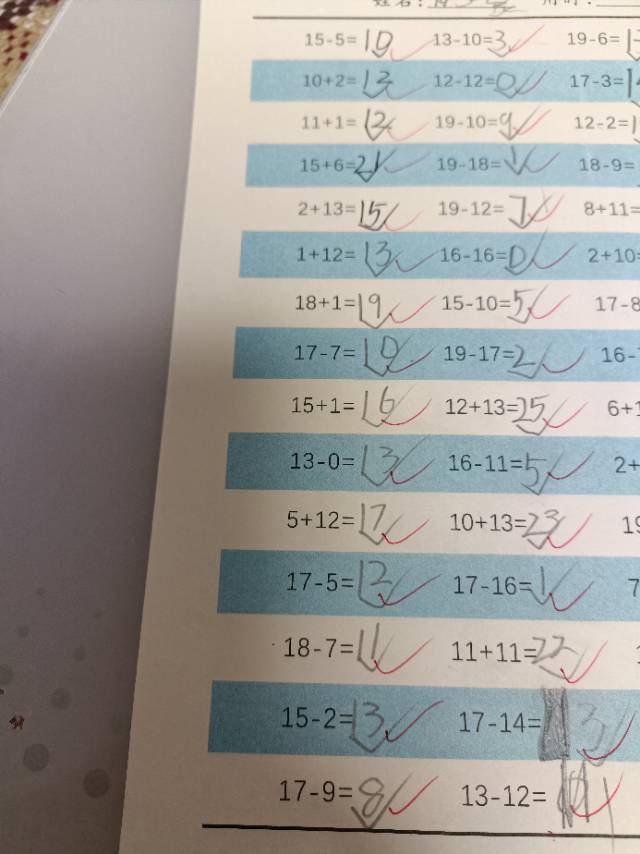 15-5=10 13-10=3 19-6=1
10+2=12 12-12=0 17-3=14
11+1=12 19-10=9 12-2=1
15+6=21 19-18=1 18-9=
2+13=15 19-12=7 8+11=
1+12=13 16-16=0 2+10=
18+1=19 15-10=5 17-8
17-7=10 19-17=2 16-
15+1=16 12+13=25 6+1
13-0=13 16-11=5 2+
5+12=17 10+13=23 19
17-5=12 17-16=1 7
18-7=11 11+11=22
15-2=13 17-14=3
17-9=8 13-12=